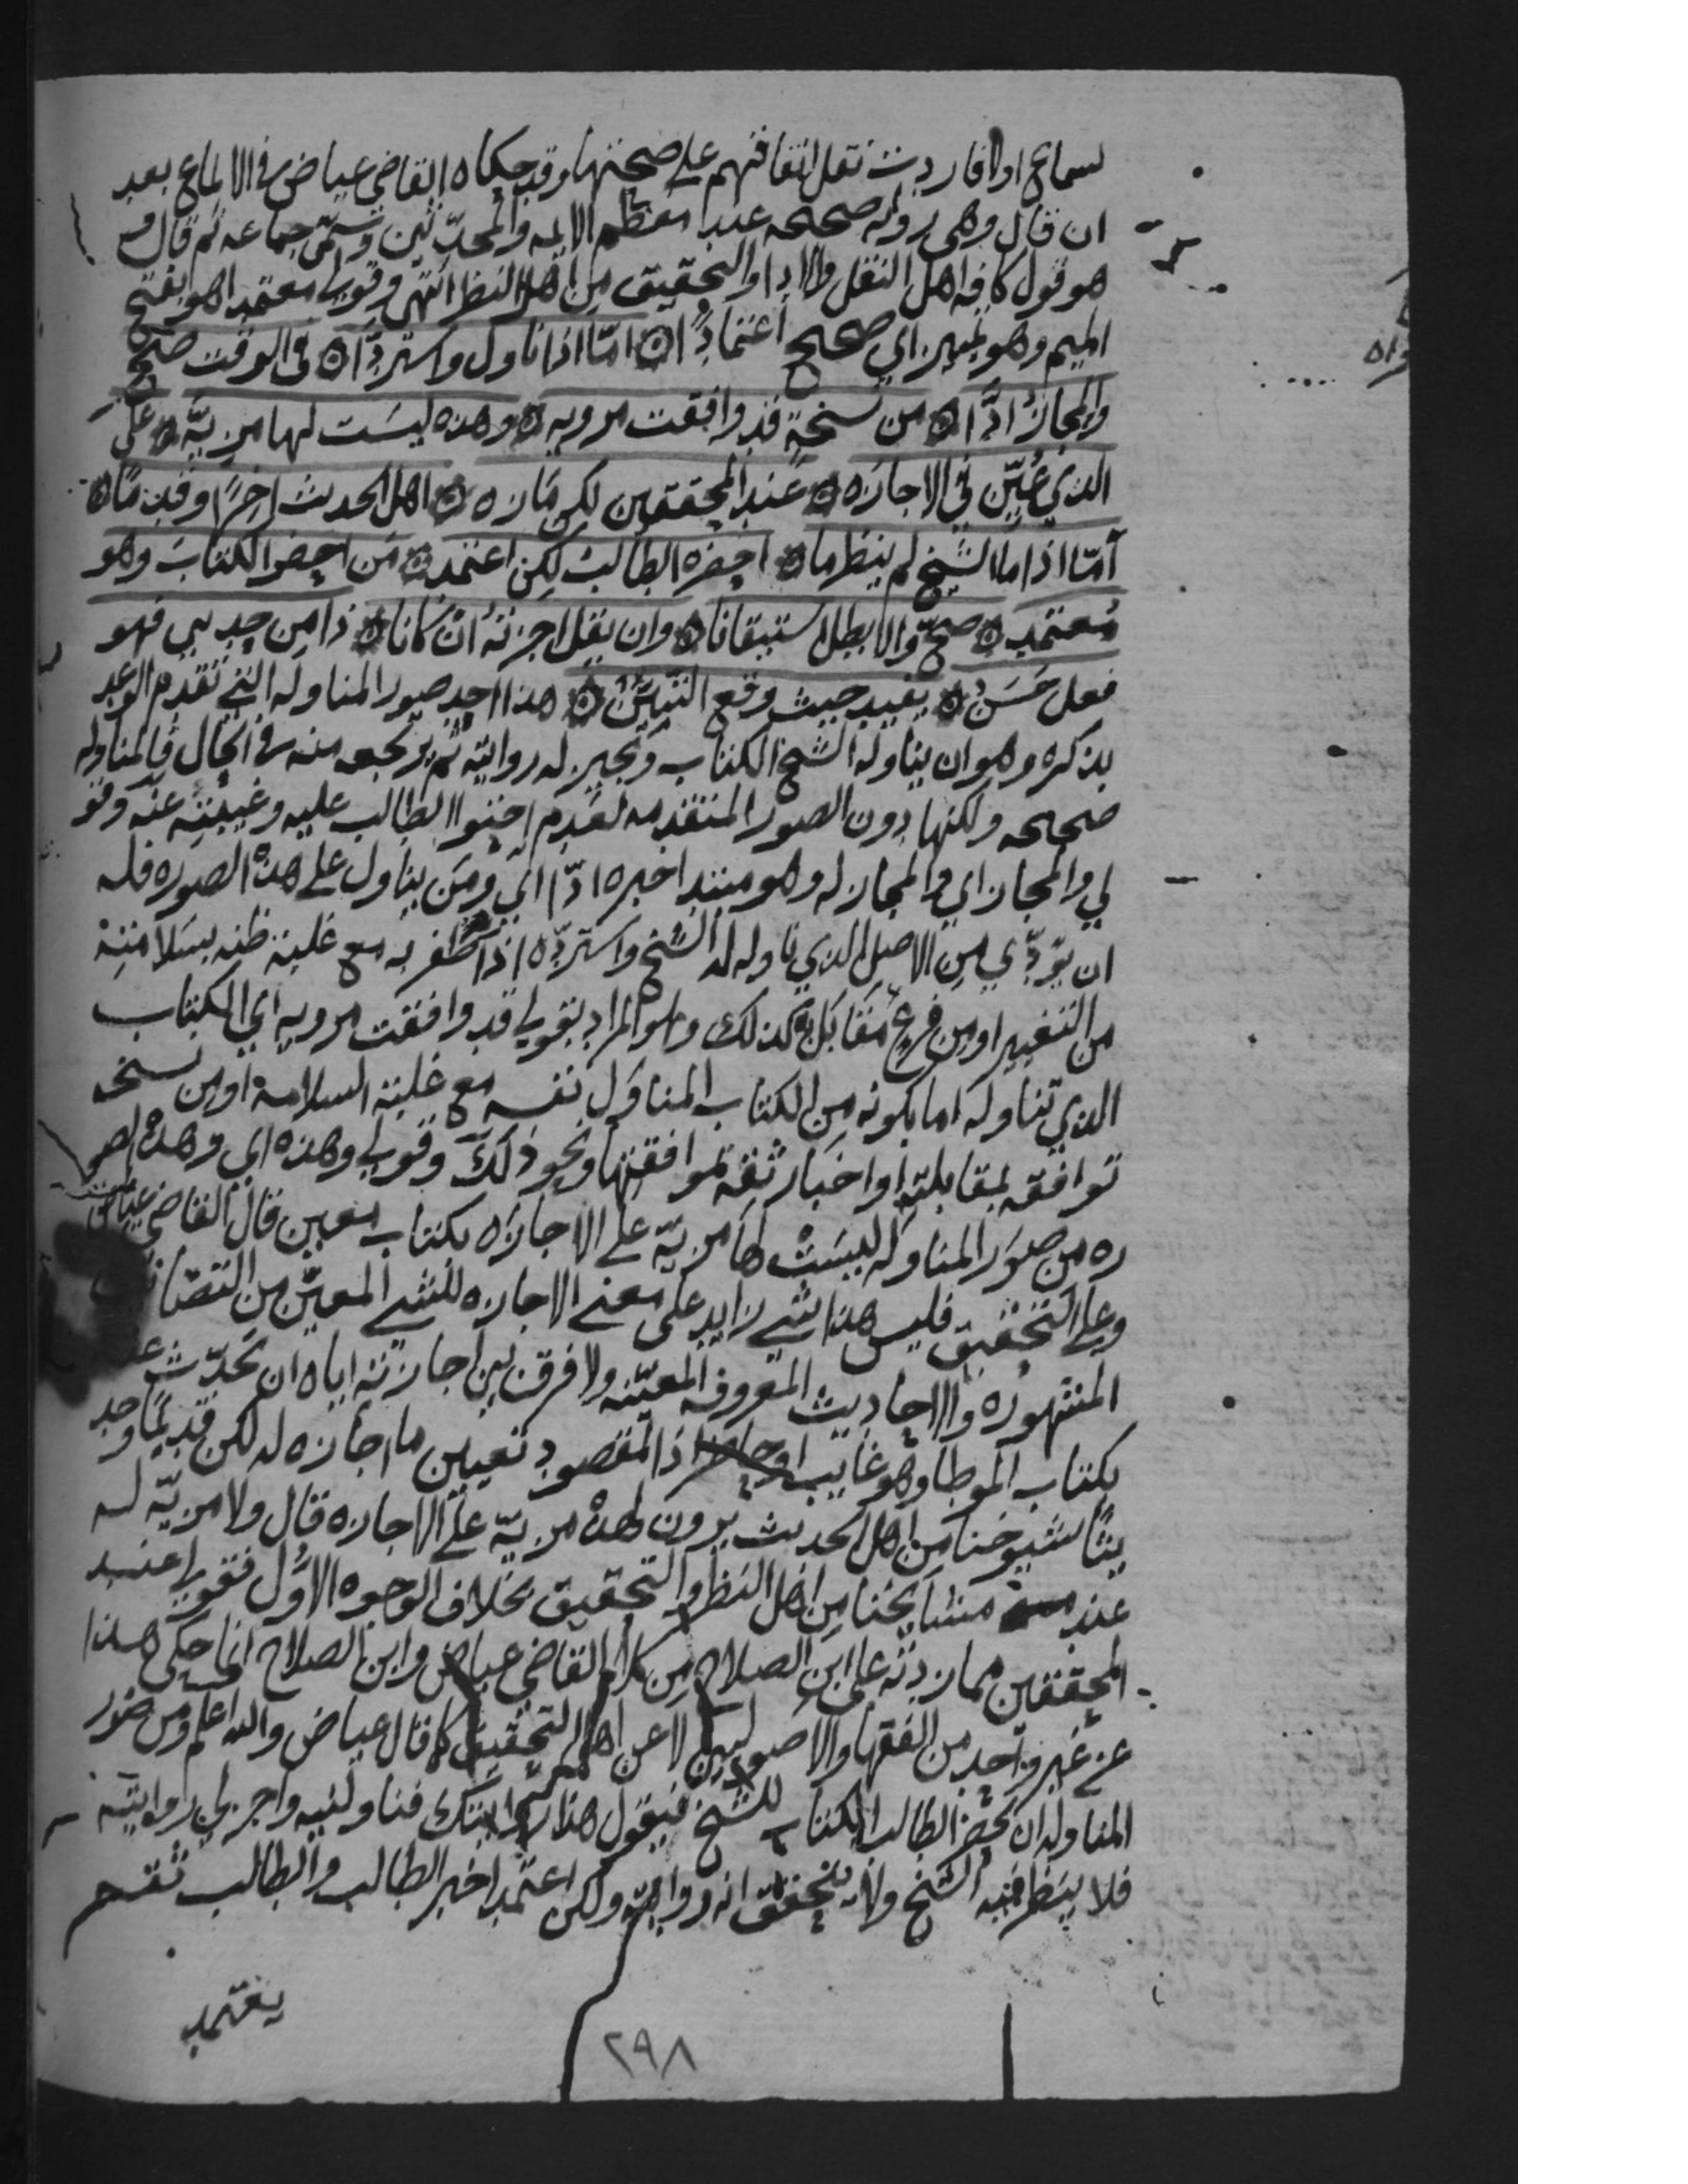 سماع اولا فاردت نقل اتفاقهم على صحتها وقد حكاه القاضي عياض في الالماع بعد
ان قال وهي رواية صحيحه عند معظم الايمه والمحدثين وسمى جماعه ثم قال و
هو قول كافه اهل النقل والادا والتحقيق من اهل النظر انتهى وقولي معتمدا هو بفتح
الميم وهو تمييز اي صحيح اعتمادًا ۞ امّا اذا ناول واستردّا ۞ في الوقت صحّ
والمجاز ادّا ۞ من نسخةٍ قد وافقت مرويه ۞ وهذه ليست لها مزيّه ۞ على
الذي عُيّن في الاجازه ۞ عند المحققين لكن مازه ۞ اهل الحديث اخرًا وقدمًا ۞
أمّا اذا ما الشيخ لم ينظر ما ۞ احضره الطالب لكن اعتمد ۞ من احضر الكتاب وهو
مُعتمد ۞ صحّ والا بطل استيقانا ۞ وان يقل اجزته ان كانا ۞ ذا من حديثي فهو
فعل حَسَنُ ۞ يفيد حيث وقع التبيّنُ ۞ هذا احد صور المناوله التي تقدم الوعد
بذكره وهو ان يناوله الشيخ الكتاب ويجيز له روايته ثم يرتجعه منه في الحال فالمناوله
صحيحه ولكنها دون الصور المتقدمه لعدم احتوا الطالب عليه وغيبته عنه وقو
لي والمجاز اي والمجاز له وهو مبتدا خبره ادّا اي ومن يناول على هذه الصوره فله
ان يؤدّي من الاصل الذي ناوله له الشيخ واستردّه اذا ظفر به مع غلبة ظنه بسلامته
من التغيير او من فرع مقابَل به كذلك وهو المراد بقولي قد وافقت مرويه اي الكتاب
الذي تناوله اما بكونه من الكتاب المناوَل نفسه مع غلبة السلامه او من نسخه
توافقه بمقابلته او اخبار ثقه بموافقتها ونحو ذلك وقولي وهذه اي وهذه الصو
ره من صور المناوله ليست لها مزيّه على الاجازه بكتاب معين قال القاضي عياض
وعلى التحقيق فليس هذا بشي زايد على معنى الاجازه للشي المعيّن من التصانيف
المشهوره والاحاديث المعروفه المعيّنه ولا فرق بين اجازته اياه ان يحدّث عنه
بكتاب الموطا وهو غايب او حاضر اذ المقصود تعيين ما اجازه له لكن قديمًا وحد
يثًا شيوخنا من اهل الحديث يرون لهذه مزيّه على الاجازه قال ولا مزيّه له
عند مشايخنا من اهل النظر والتحقيق بخلاف الوجوه الاُوَل فقولي عند
المحققين مما زدته على ابن الصلاح من كلام القاضي عياض وابن الصلاح انما حكى هذا
عن غير واحد من الفقها والاصوليين لا عن اهل التحقيق كما قال عياض والله اعلم ومن صور
المناوله ان يحضر الطالب الكتاب للشيخ فيقول هذا روايتك فناولنيه واجز لي روايته
فلا ينظر فيه الشيخ ولا يتحقق انه روايته ولكن اعتمد خبر الطالب والطالب ثقه
يعتمد
٢٩٨